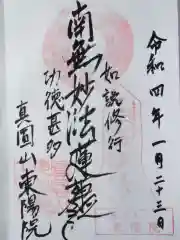 令和四年一月二十三日
如説修行
南無妙法蓮華経
功徳甚多
真圓山東陽院